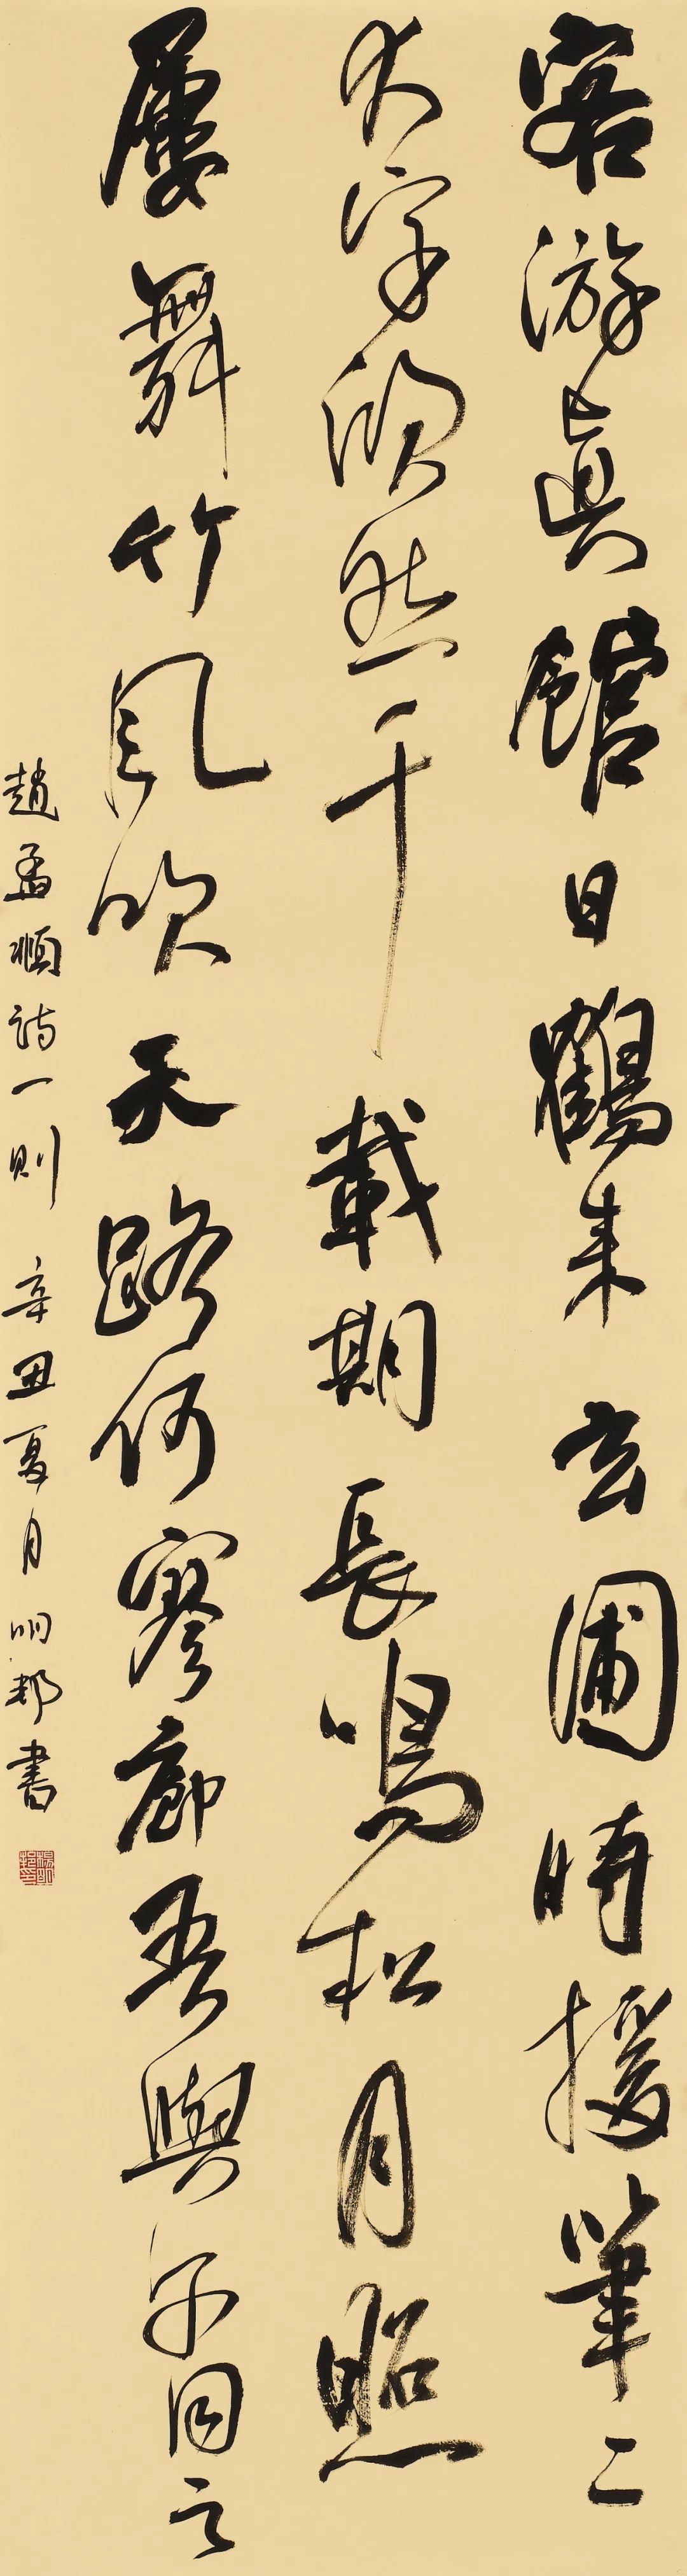 客游真館日鶴来玄圃時援筆二
大字欣然千載期長鳴松月照
屢舞竹風吹天路何寥廓吾與子同之
趙孟頫詩一則 辛丑夏月 明邦書